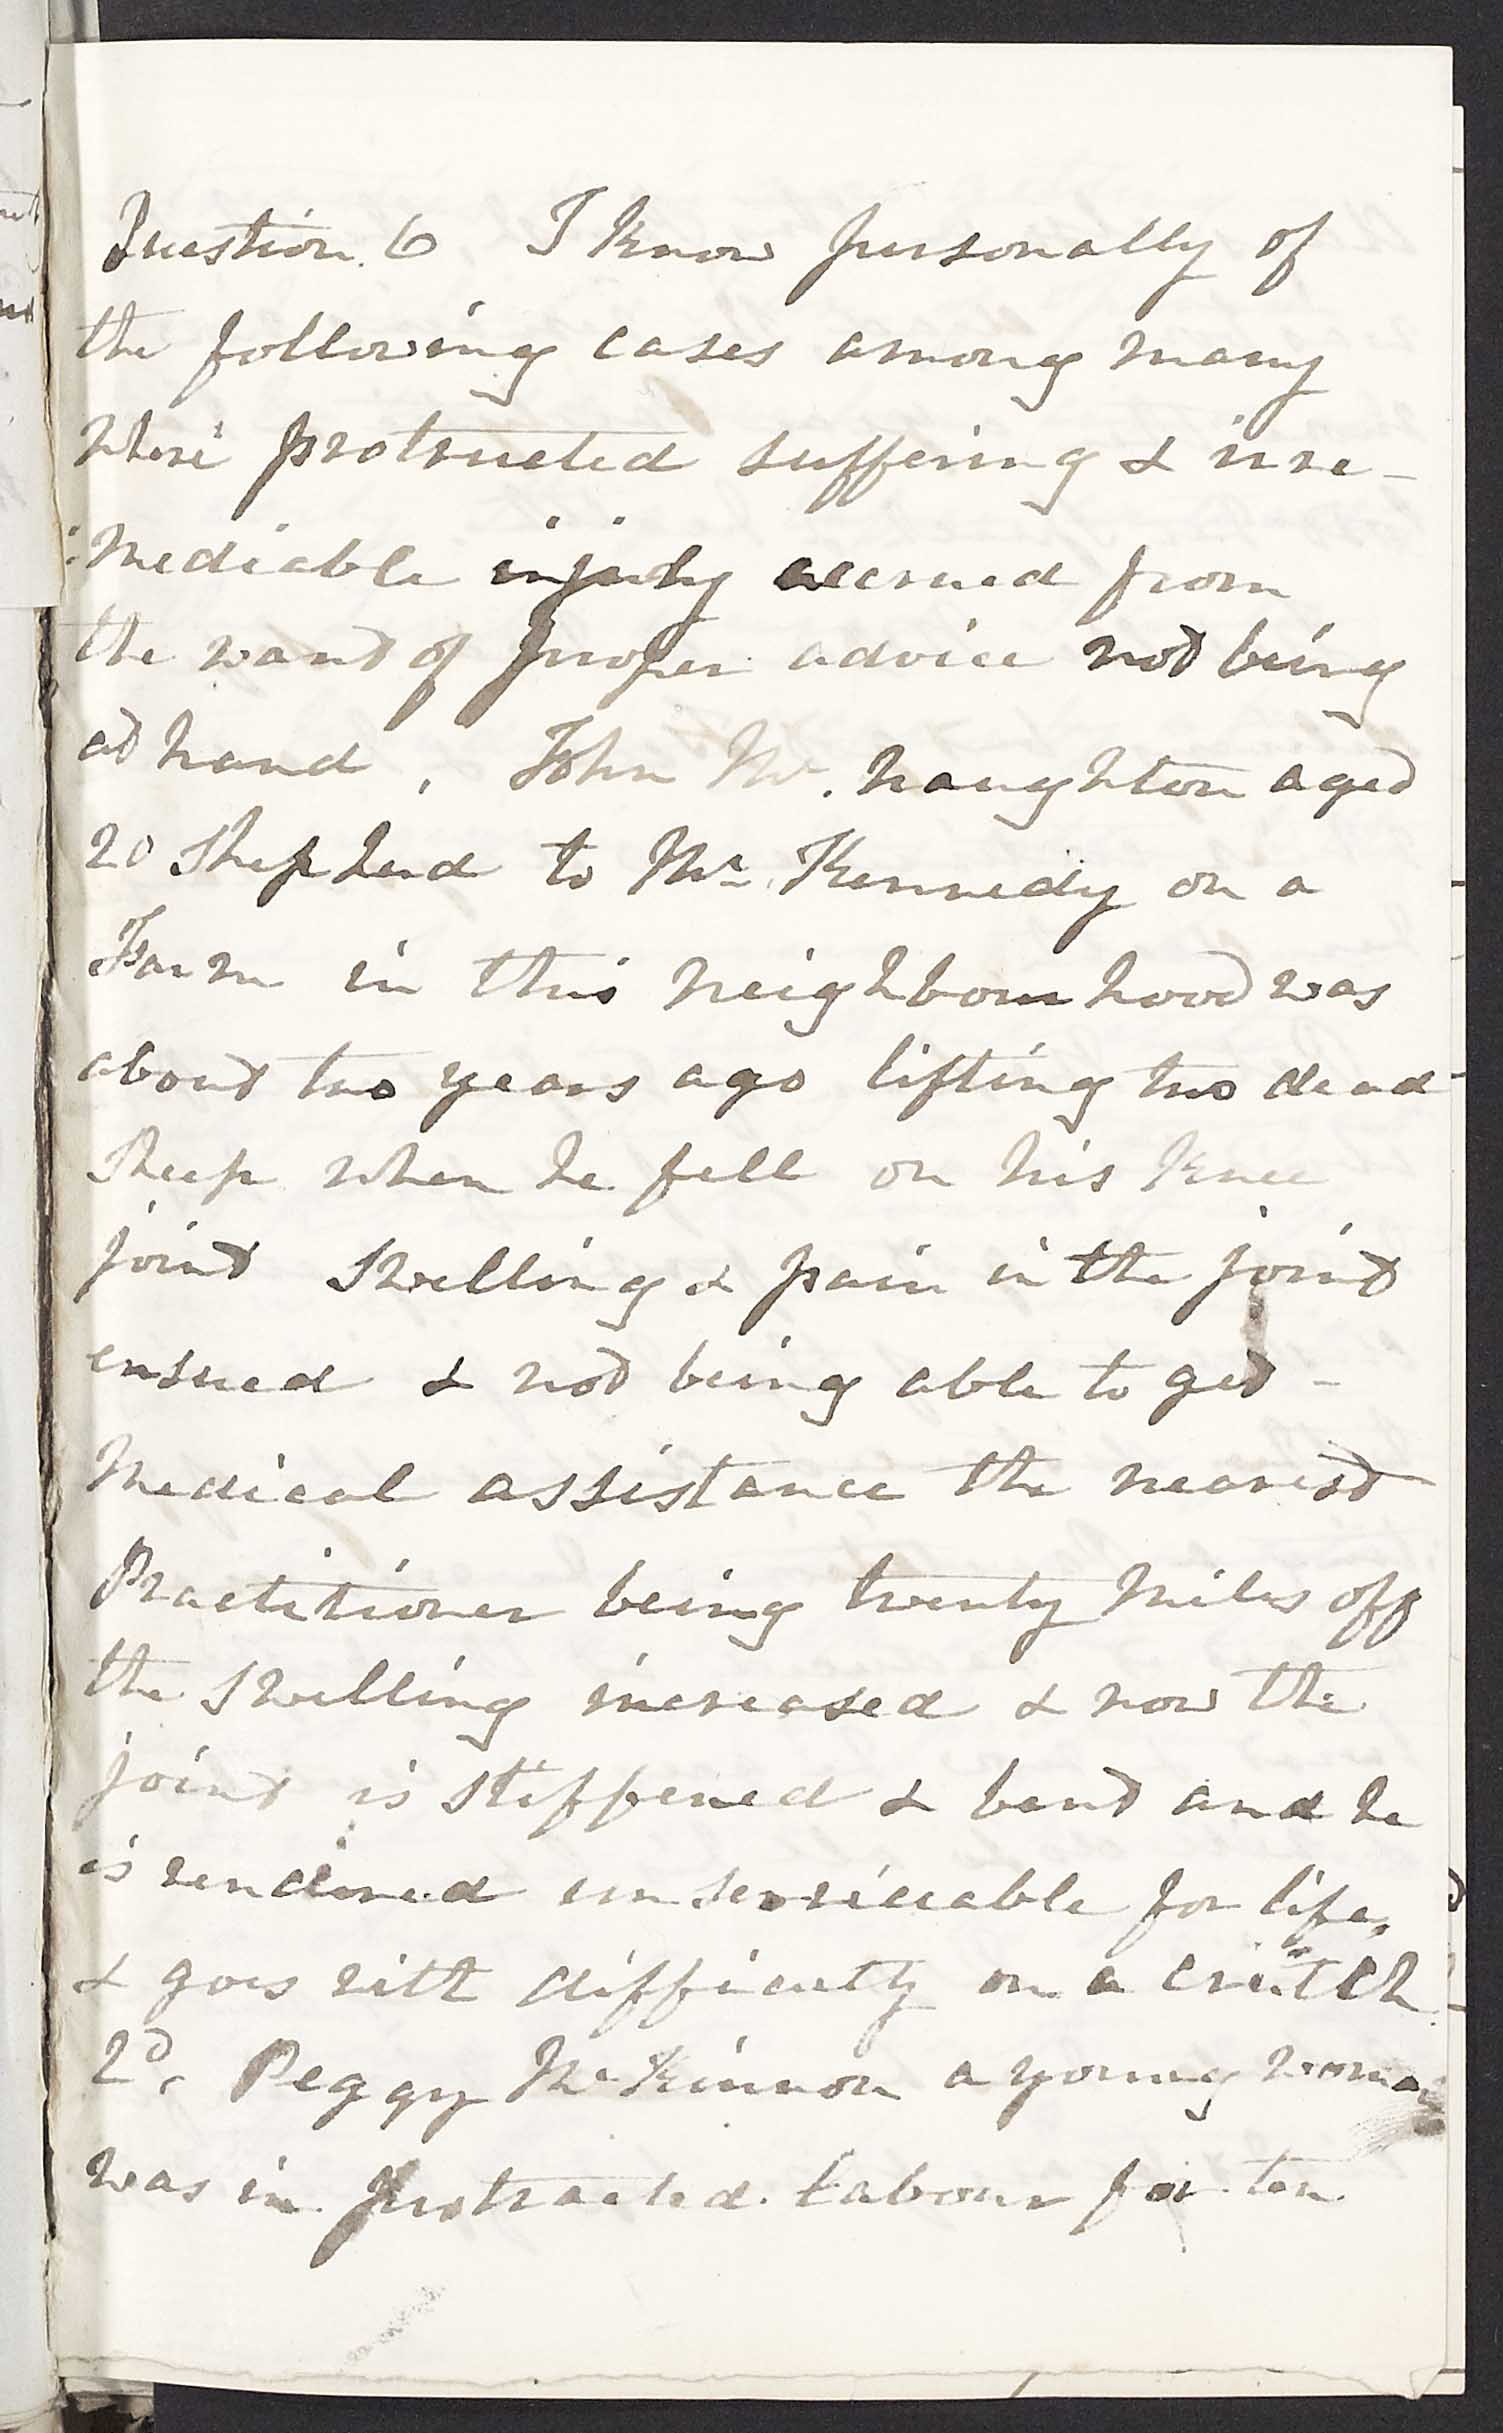 Question. 6 I know personally of
the following cases among many
where protracted suffering & irre-
:mediable injury accrued from
the want of proper advice not being
at hand, John Mc. Naughton aged
20 Shepherd to Mr. Kennedy on a
Farm in this neighbourhood was
about two years ago lifting two dead
Sheep when he fell on his Knee
joint Swelling & pain in the joint
ensued & not being able to get -
Medical assistance the nearest
Practitioner being twenty Miles off
the Swelling increased & now the
joint is stiffened & bent and he
is rendered unserviceable for life,
& goes with difficulty on a crutch
2d, Peggy McKinnon a young woman
was in protracted. Labour for ten